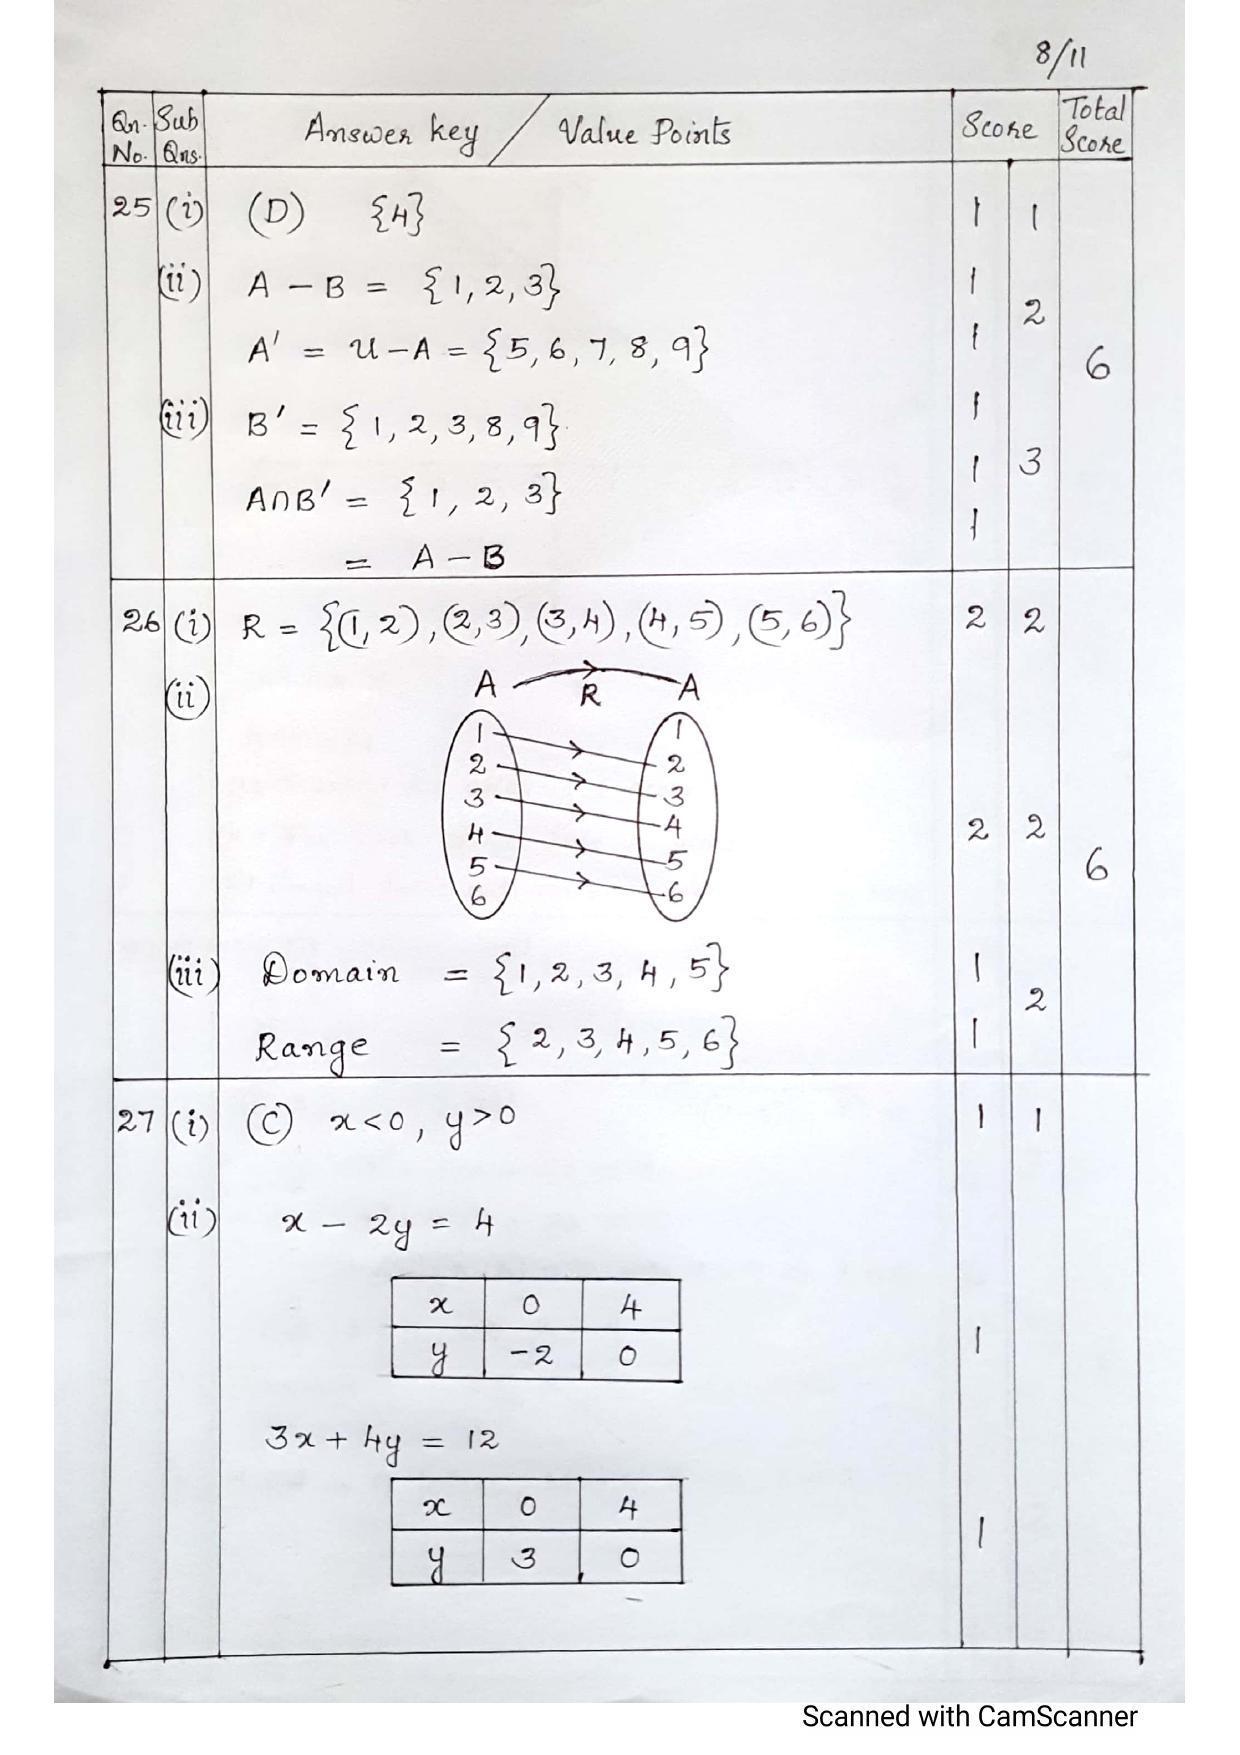 8/11
Qn. No. Sub Qns. Answer key / Value Points Score Total Score
25 (i) (D) {4} 1 1
(ii) A - B = {1, 2, 3} 1
2
A' = U - A = {5, 6, 7, 8, 9} 1
6
(iii) B' = {1, 2, 3, 8, 9} 1
A∩B' = {1, 2, 3} 1 3
= A - B 1
26 (i) R = {(1, 2), (2, 3), (3, 4), (4, 5), (5, 6)} 2 2
(ii) A R A
1 1
2 2
3 3
4 4 2 2
5 5
6 6
6
(iii) Domain = {1, 2, 3, 4, 5} 1
2
Range = {2, 3, 4, 5, 6} 1
27 (i) (C) x<0, y>0 1 1
(ii) x - 2y = 4
x 0 4
y -2 0 1
3x + 4y = 12
x 0 4
y 3 0 1
Scanned with CamScanner